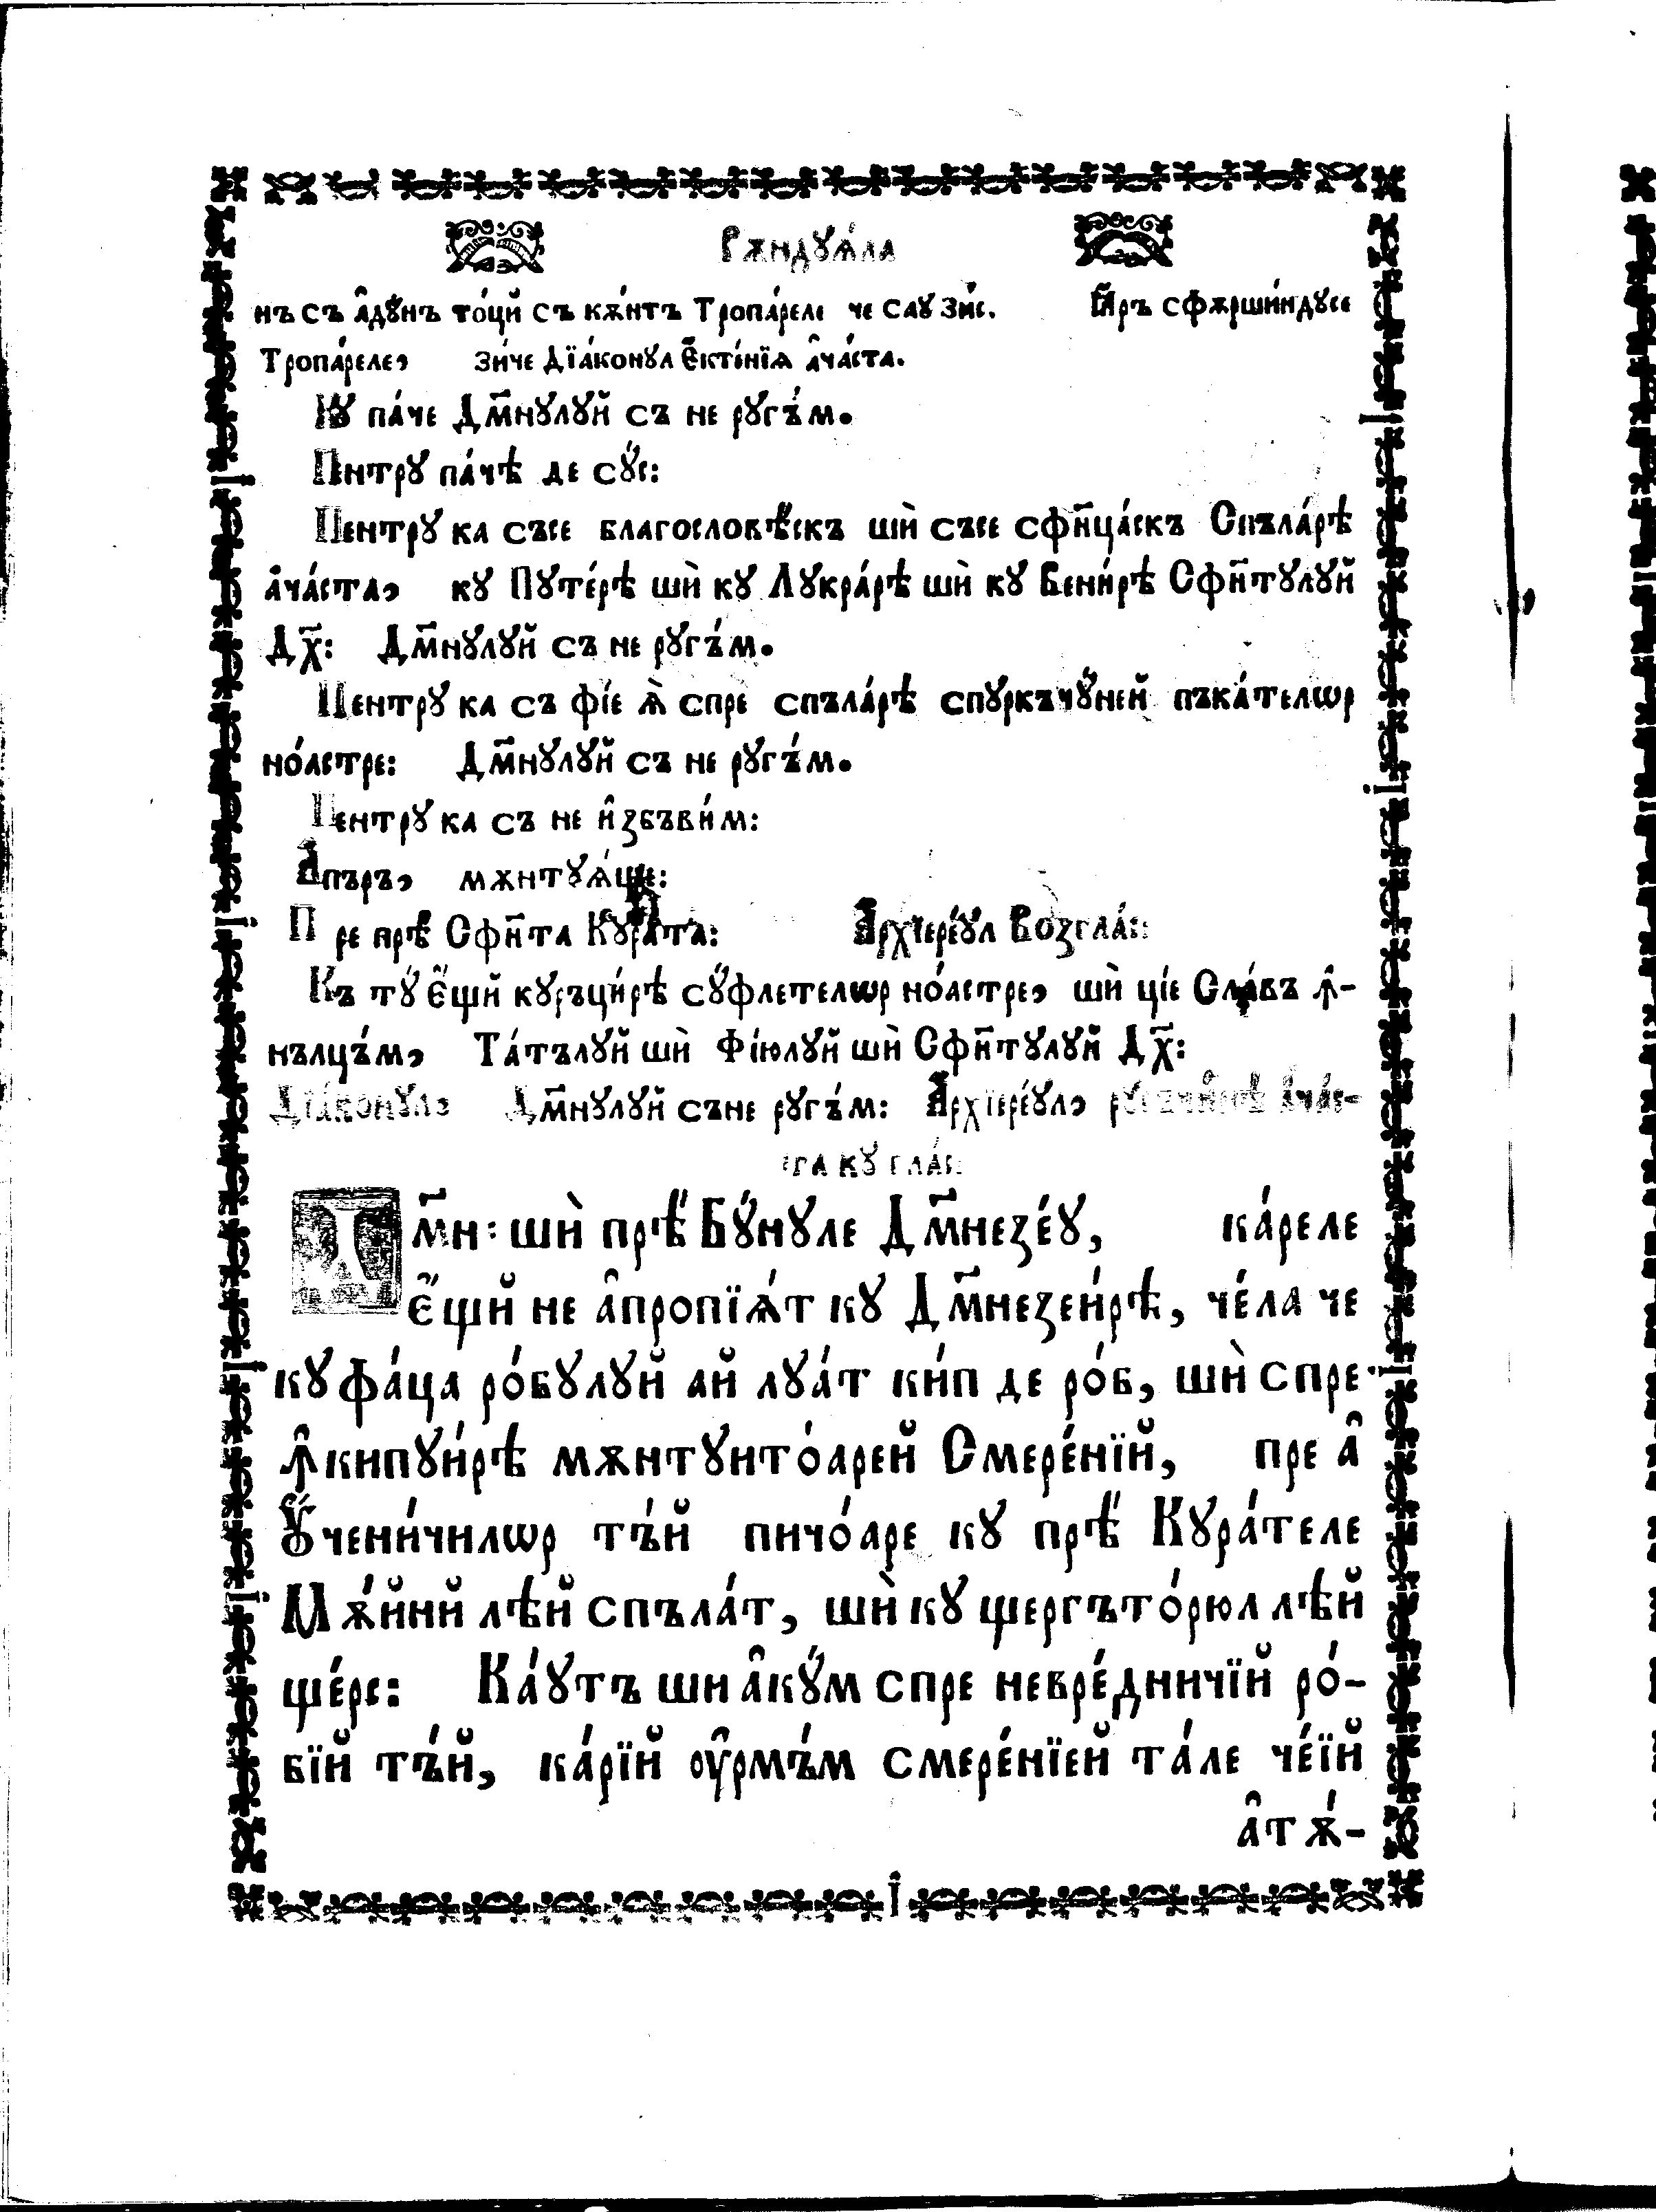 Рѫндꙋꙗ́ла
нъ съ а҆дꙋ́нъ то́цй съ кѫ́нтъ Тропа́реле че саꙋ зи́с. І҆а́ръ сфѫрши́ндꙋсе
Тропа́реле, зи́че Дїа́конꙋл Є҆ктенїѧ а҆ча́ста.
Кꙋ па́че Дм҃нꙋлꙋй съ не рꙋгъ́м.
Пентрꙋ па́чѣ де сꙋ́с:
Пентрꙋ ка съсе благословѣ́скъ шѝ съсе сфи҃нца́скъ Спъла́рѣ
а҆ча́ста, кꙋ Пꙋте́рѣ шѝ кꙋ Лꙋкра́рѣ шѝ кꙋ Вени́рѣ Сфи҃нтꙋлꙋй
Дх҃: Дм҃нꙋлꙋй съ не рꙋгъ́м.
Пентрꙋ ка съ фі́е ѧ̀ спре спъла́рѣ спꙋркъчꙋ́ней пъка́телѡр
но́астре: Дм҃нꙋлꙋй съ не рꙋгъ́м.
Пентрꙋ ка съ не и҆збъви́м:
А҆пъръ, мѫнтꙋѧ́ще:
Пре прѣ́ Сфи҃нта Кꙋра́тъ: А҆рхїере́ꙋл Возгла́:
Къ тꙋ́ Є҆́щй кꙋръци́рѣ сꙋ́флетелѡр но́астре, шѝ ці́е Сла́въ ꙟ҆-
нълцъ́м, Та́тълꙋй шѝ Фі́юлꙋй шѝ Сфи҃нтꙋлꙋй Дх҃:
Дїа́конꙋл, Дм҃нꙋлꙋй съне рꙋгъ́м: А҆рхїере́ꙋл, рꙋгъчю́нѣ а҆ча́с-
та кꙋ гла́с:
Дм҃н: шѝ прѣ́ Бꙋ́нꙋле Дм҃незе́ꙋ, ка́реле
є҆́щй не а҆пропїѧ́т кꙋ Дм҃незеи́рѣ, че́ла че
кꙋ фа́ца ро́бꙋлꙋй ай лꙋа́т ки́п де ро́б, шѝ спре
ꙟ҆кипꙋи́рѣ мѫнтꙋито́арей Смере́нїй, пре а҆
Ꙋ҆чени́чилѡр тъ́й пичо́аре кꙋ прѣ́ Кꙋра́теле
Мѫ́йнй лѣй спъла́т, шѝ кꙋ щергъто́рюл лѣй
ще́рс: Ка́ꙋтъ ши а҆кꙋ́м спре невре́дничїй ро́-
бїй тъ́й, ка́рїй ѹ҆рмъ́м смере́нїей та́ле че́їй
а҆тѫ́-